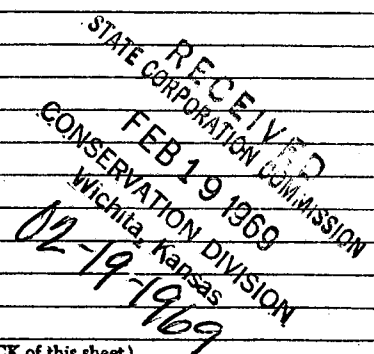 RECEIVED
STATE CORPORATION COMMISSION
FEB 19 1969
CONSERVATION DIVISION
Wichita, Kansas
02-19-1969
CK of this sheet)